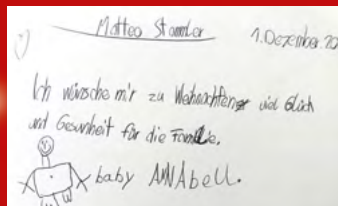 Matteo Stammler
1. Dezember 20
Ich wünsche mir zu Weihnachten viel Glück
und Gesunheit für die Familie.
baby ANAbell.